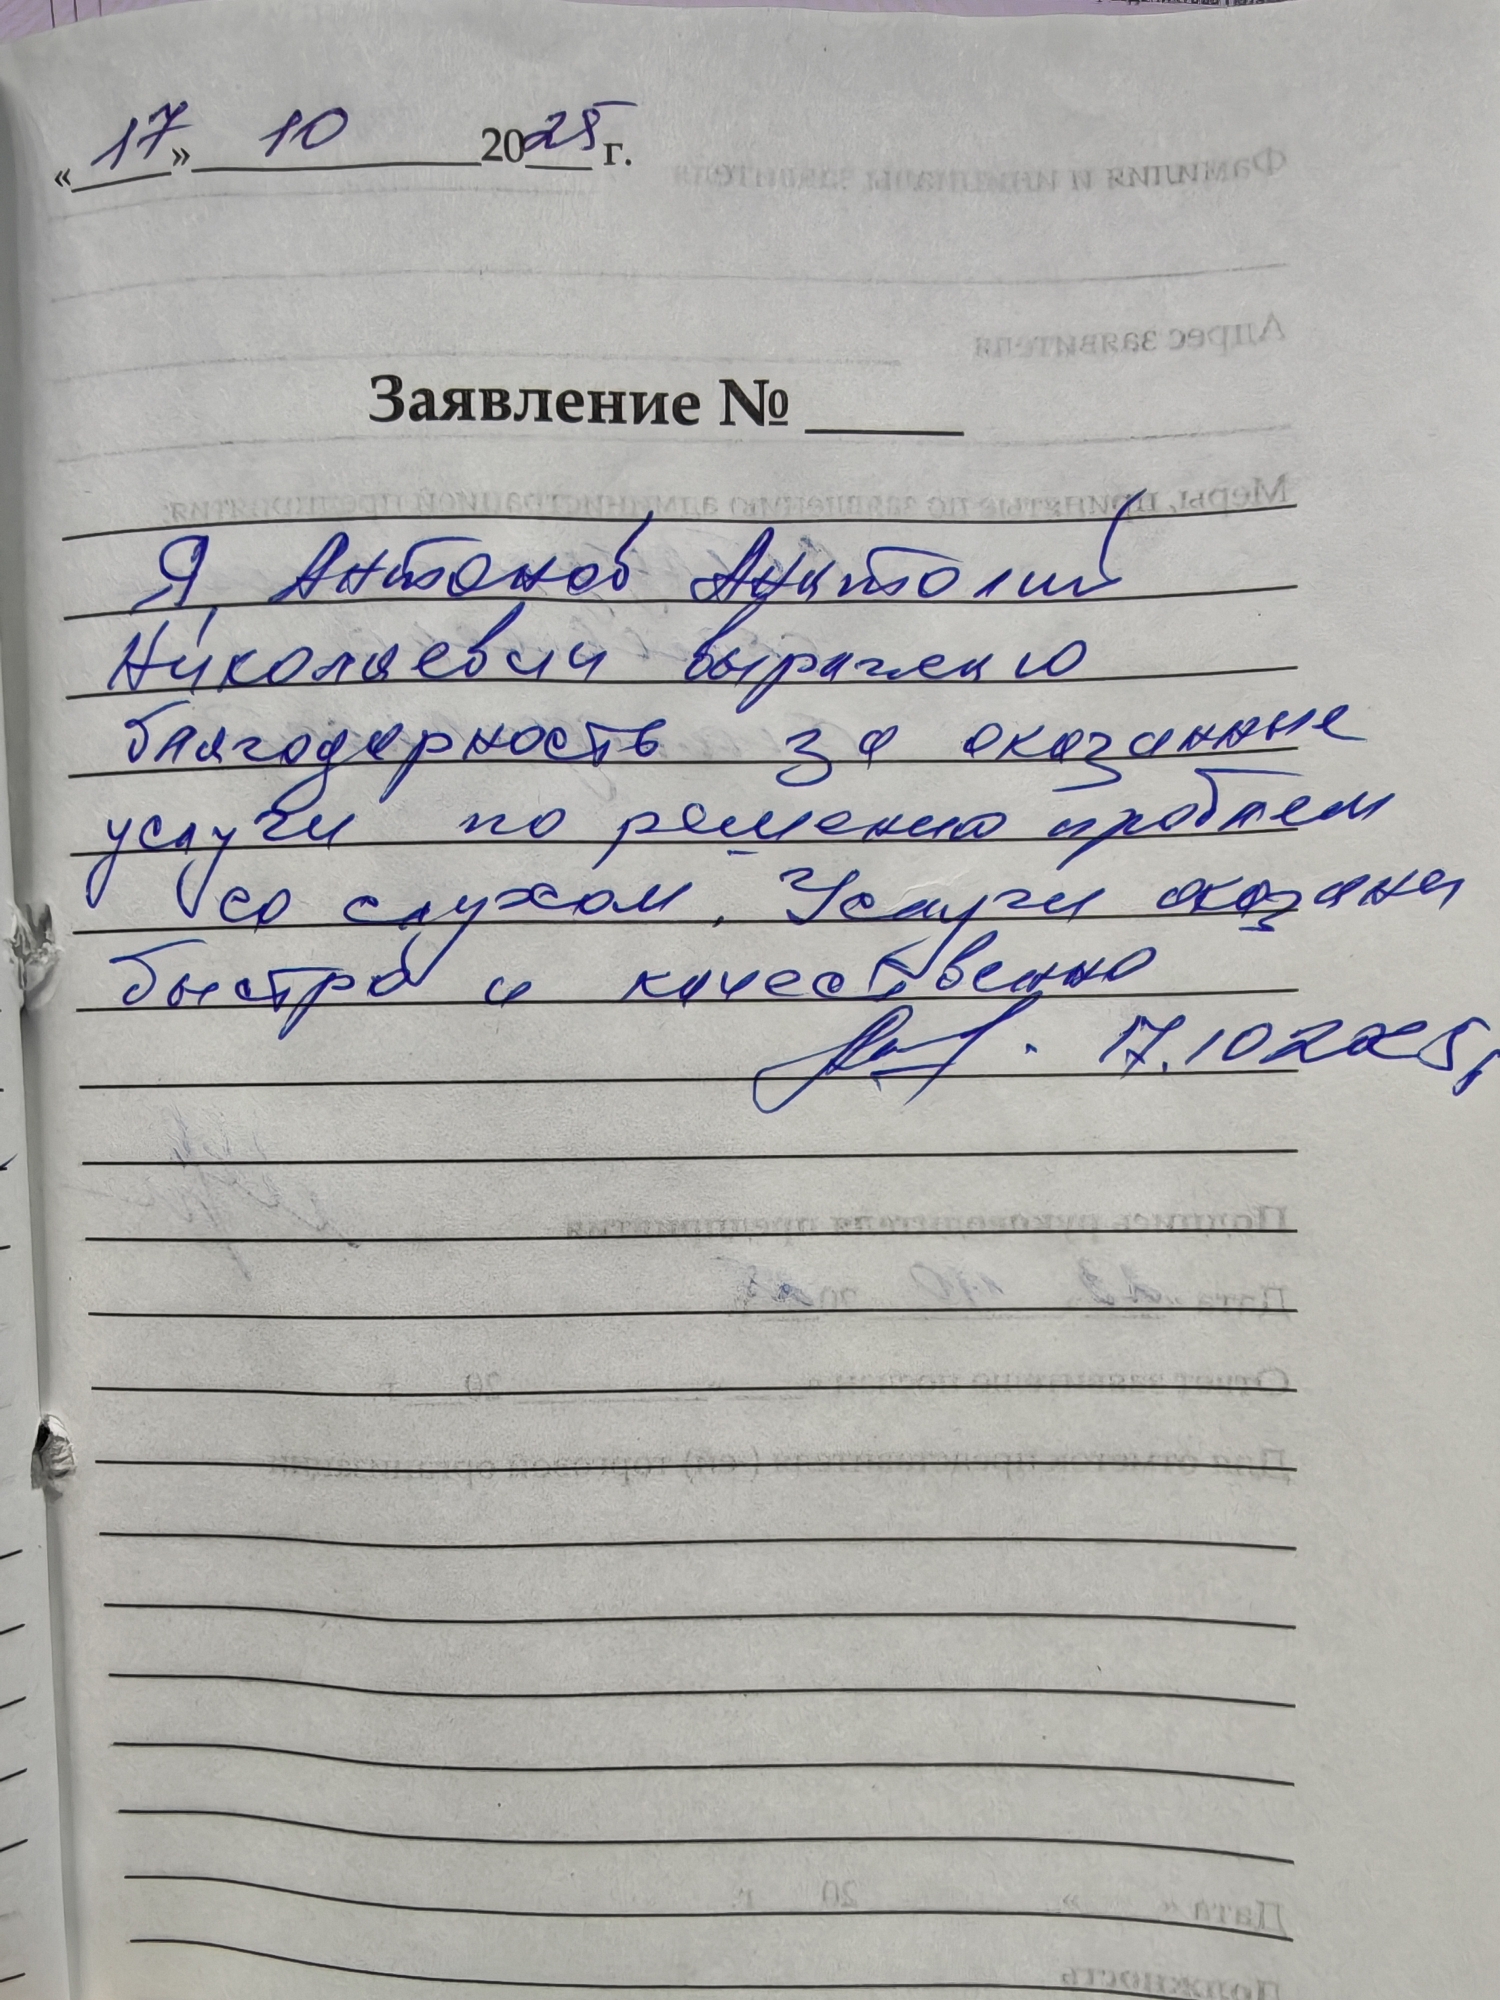 «17» 10 2025 г.
Заявление № ____
Я, Антонов Анатолий
Николаевич выражаю
благодарность за оказанные
услуги по решению проблем
со слухом. Услуги оказаны
быстро и качественно
17.10.2025г